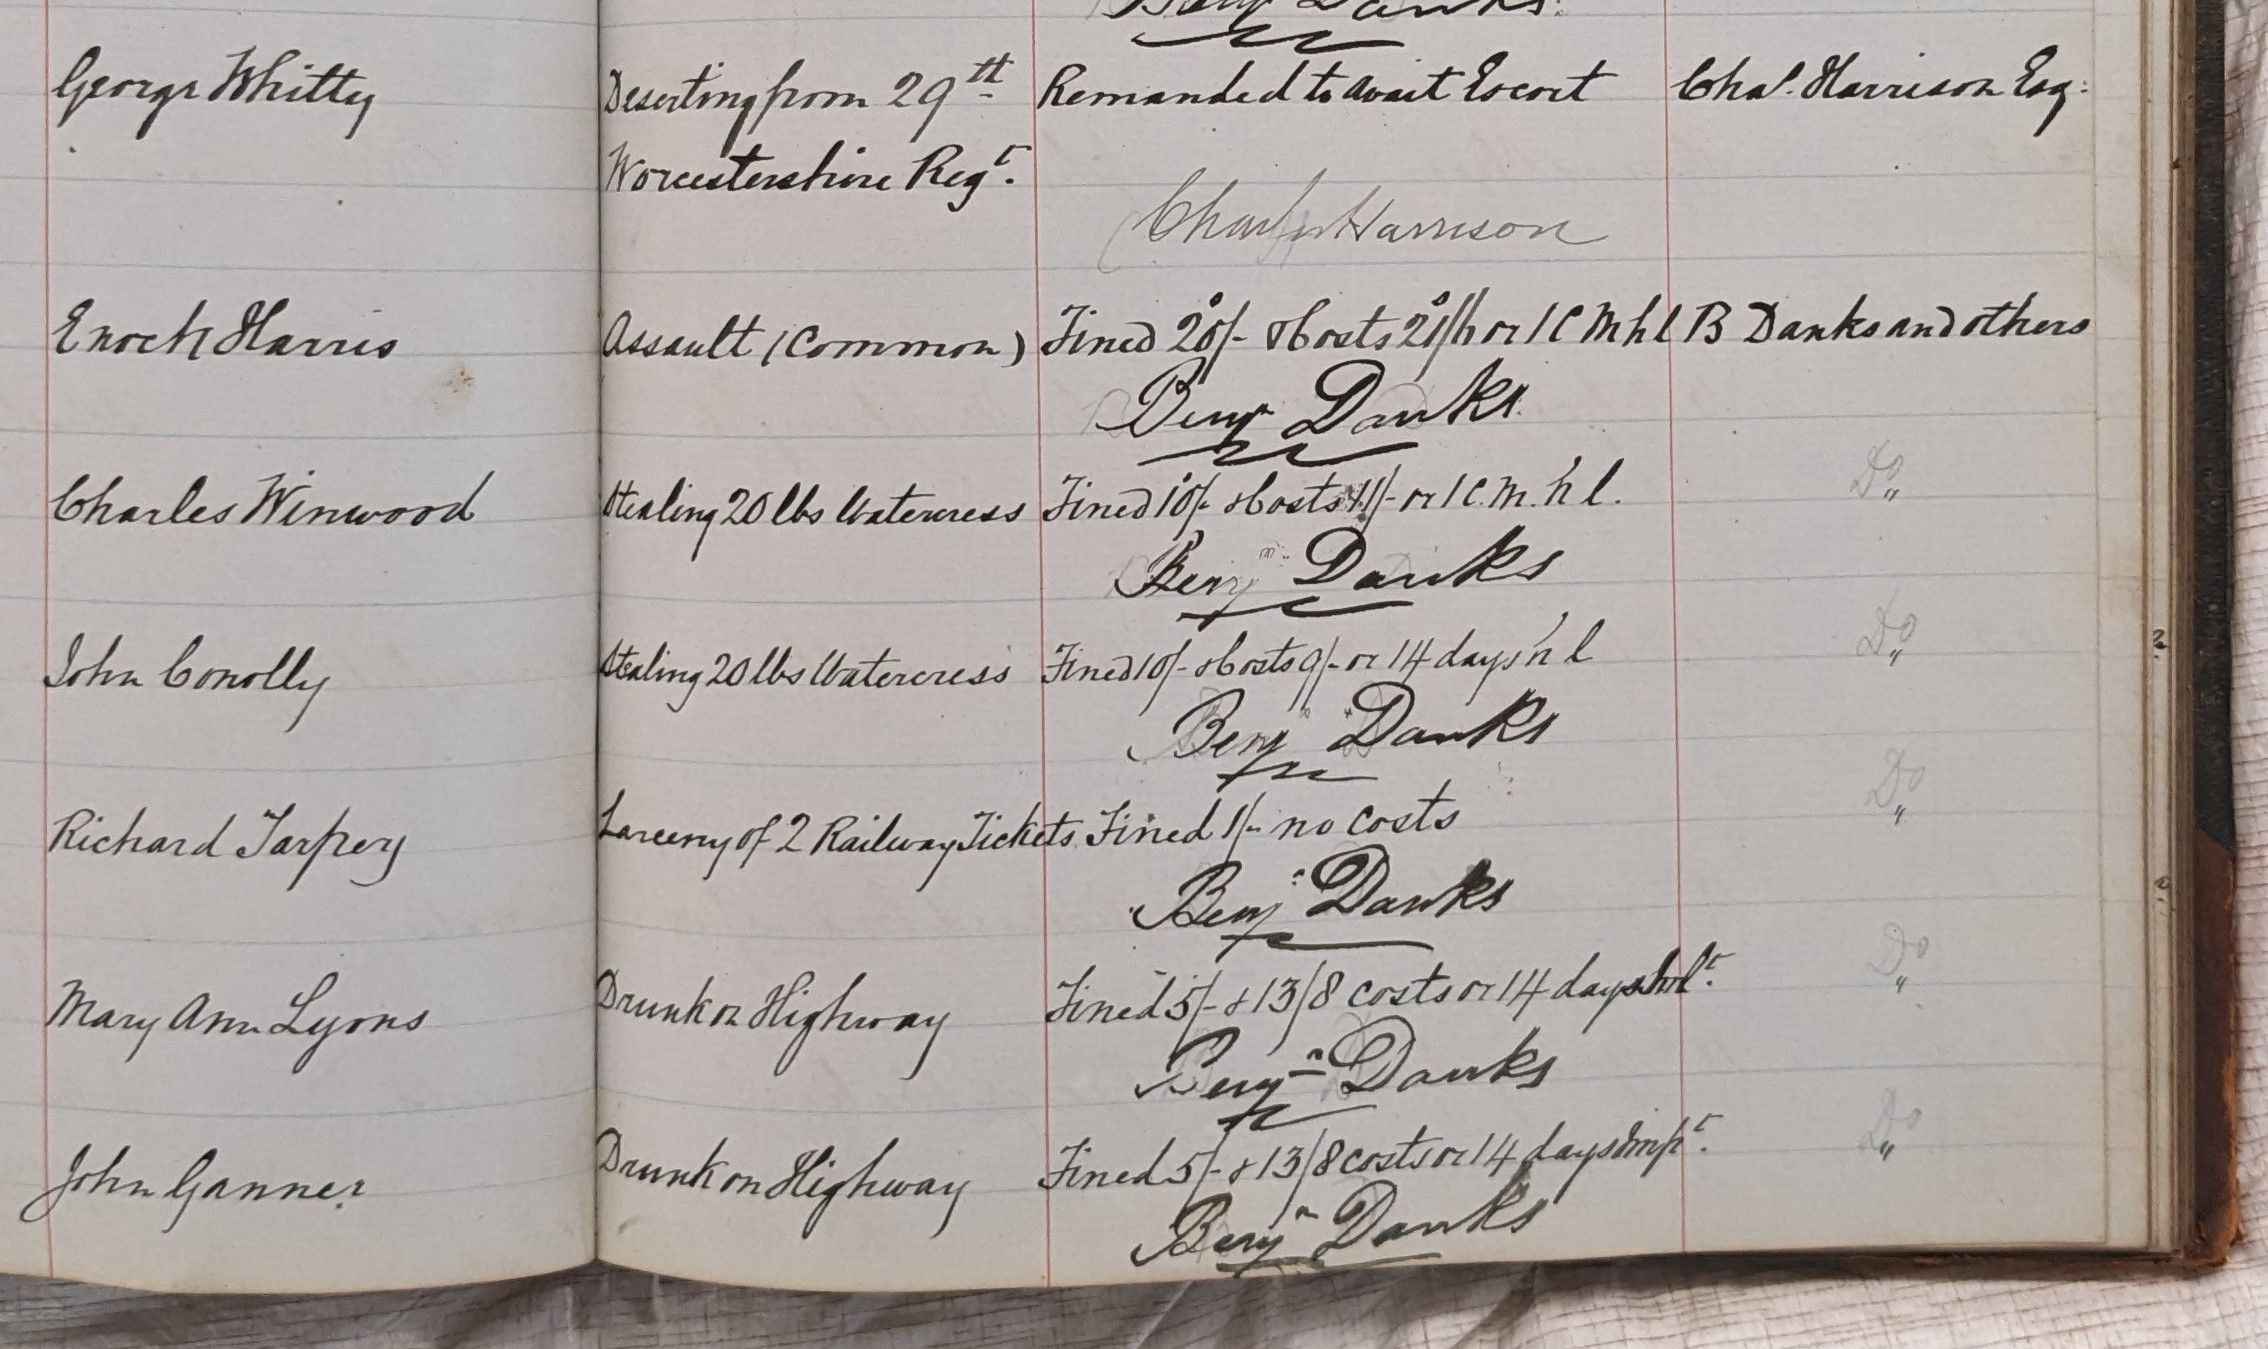 Benj Danks
George Whitty Deserting from 29th Remanded to await Escort Chas. Harrison Esq:
Worcestershire Regt.
Charles Harrison
Enoch Harris Assault (Common) Fined 20/- & Costs 21/6 or 1 C M h l B Danks and others
Benjn Danks
Charles Winwood Stealing 20 lbs Watercress Fined 10/- & Costs 11/- or 1 C. M. h l. Do
Benjn Danks
John Conolly Stealing 20 lbs Watercress Fined 10/- & Costs 9/- or 14 days h l Do
Benjn Danks
Richard Tarpey Larceny of 2 Railway Tickets Fined 1/- no Costs Do
Benjn Danks
Mary Ann Lyons Drunk on Highway Fined 5/- & 13/8 costs or 14 days Do
Benjn Danks
John Ganner Drunk on Highway Fined 5/- & 13/8 costs or 14 days Impt. Do
Benjn Danks